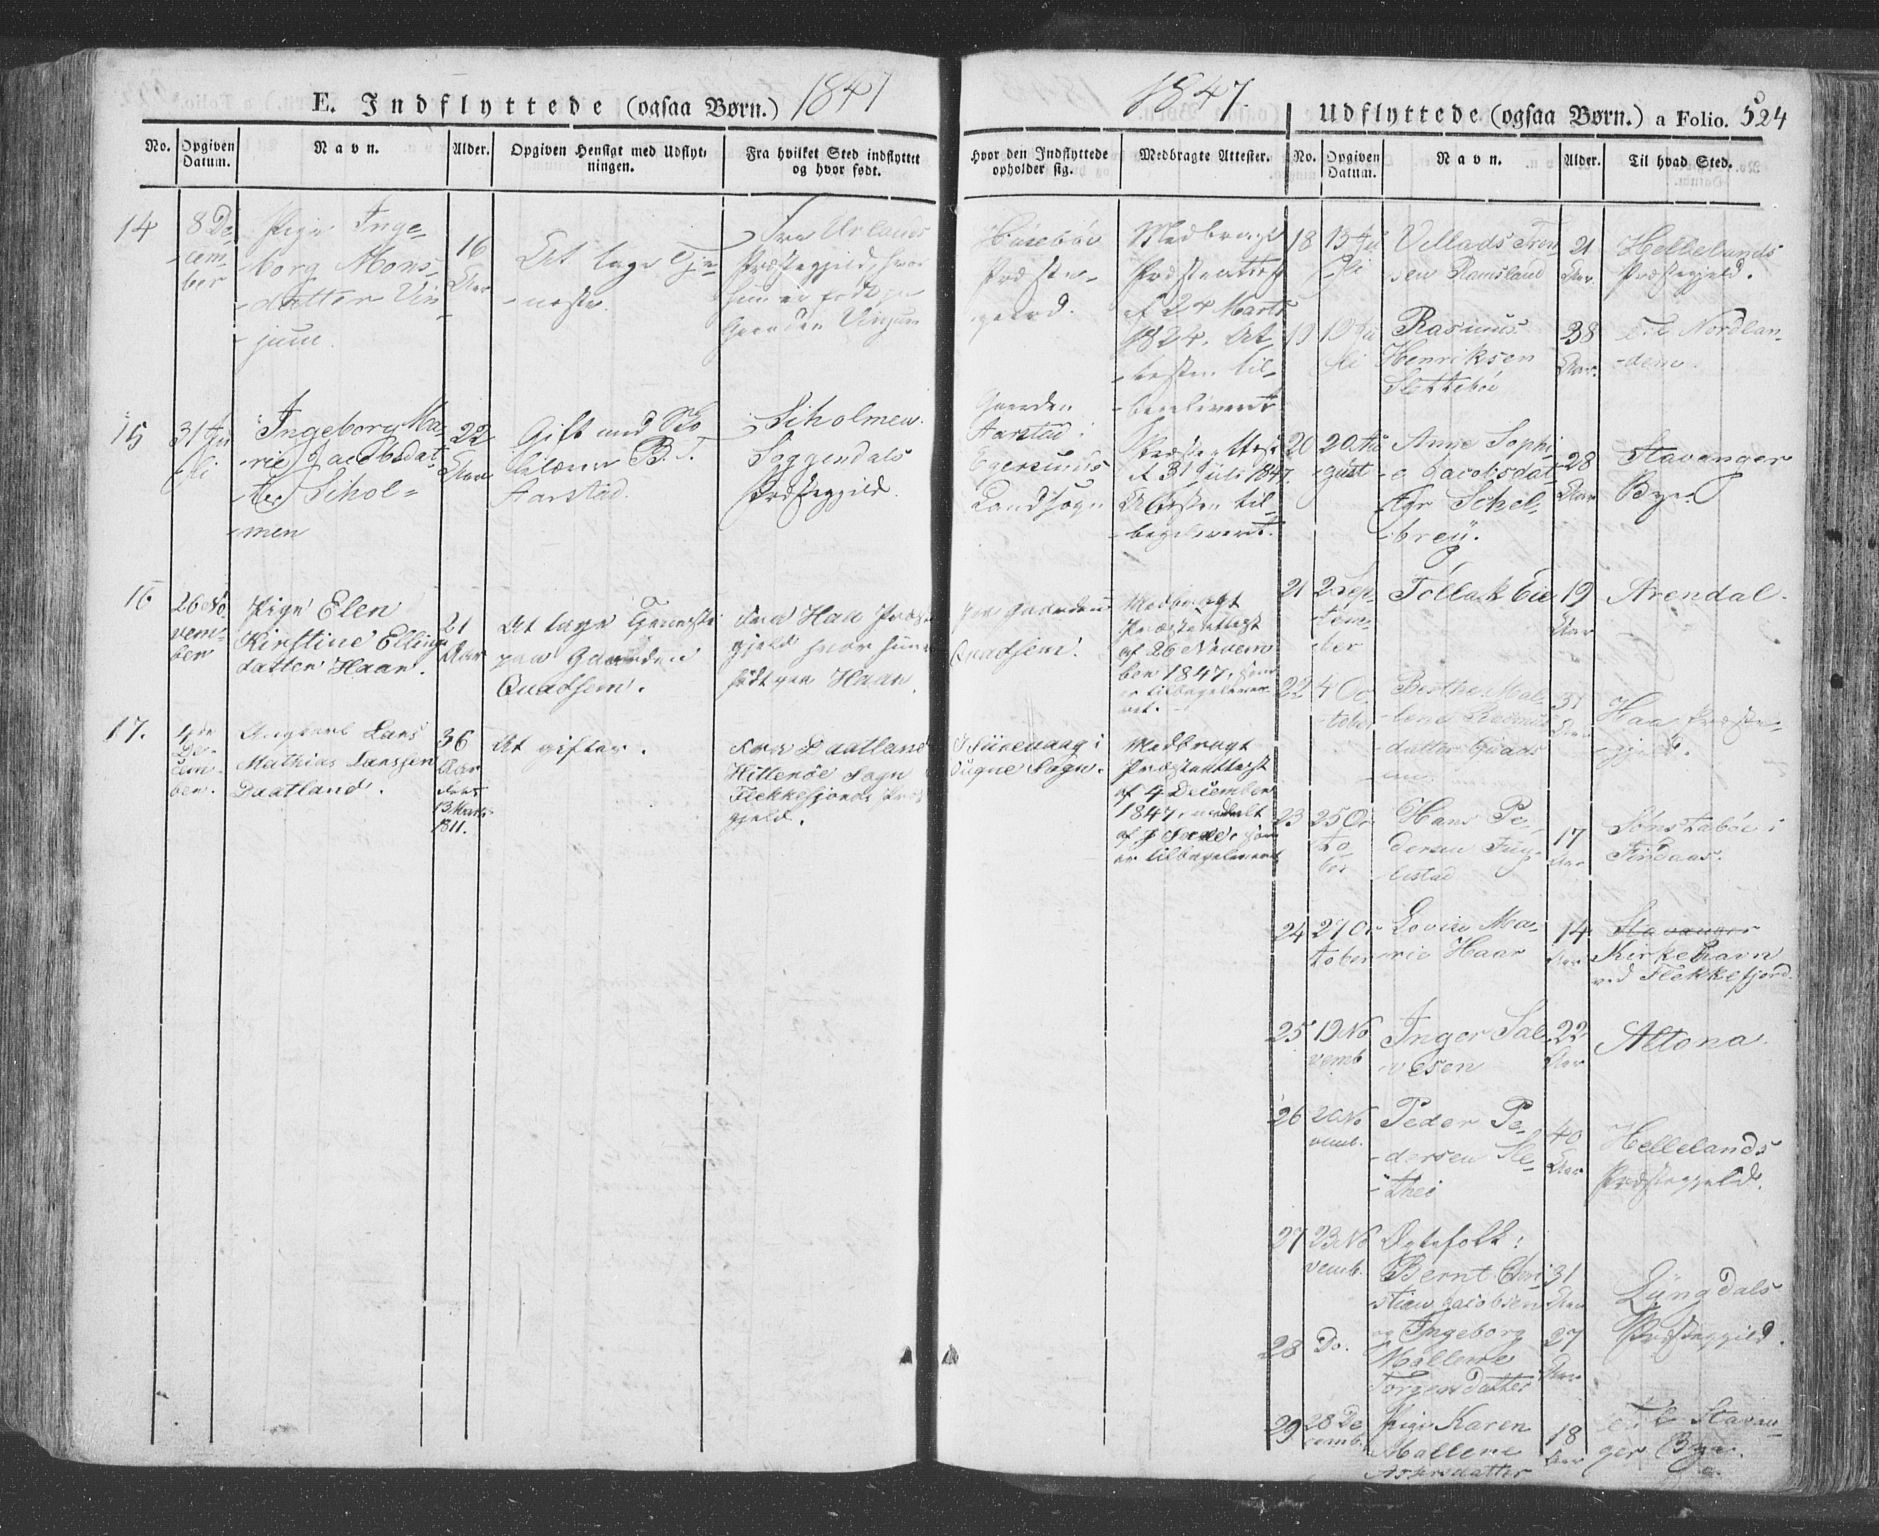 E. Indflyttede (ogsaa Børn.) 1847
No.
Opgiven Datum.
Navn.
Alder.
Opgiven Hensigt med Udflyt-
ningen.
Fra hvilket Sted indflyttet
og hvor født.
14
8 De-
cem-
ber
Pige Inge-
borg Mons-
datter Vin-
jum
16
Aar
At tage Tje-
neste.
Fra Urlands
Præstegjeld, hvor
hun er født paa
Gaarden Vinjum
15
31 Ju-
li
Ingeborg Ma-
rie Jacobsdat-
ter Siholmen
22
Aar
Gift med
B. T.
Aarstad.
Siholmen
Soggendals
Præstegjeld.
16
26 No-
vem-
ber
Pige Elen
Kirstine Ellings
datter Haar.
21
Aar
At tage Tjeneste
paa Gaarden
Quadsem.
Fra Haa Præste
gjeld hvor hun
født paa Haar.
17.
4de
De-
cem-
ber.
Ungkarl Lars
Mathias Larssen
Daatland.
36
Aar
født
13 Marts
1811.
At gifter.
Fra Daatland
Hitterøe Sogn
Flekkefjords Præ
gjeld.
1847
Udflyttede (ogsaa Børn.) a Folio. 524
Hvor den Indflyttede
opholder sig.
Medbragte Attester.
No.
Opgiven
Datum.
Navn.
Alder.
Til hvad Sted.
Præste-
gaard.
Medbragt
Præsteattest
af 24 Marts
1824. At-
testen til-
bageleveret
Gaarden
Aarstad i
Egersunds
Landsogn
Præsteattest
af 31 Juli 1847.
Attesten til-
bageleveret.
paa Gaarden
Quadsem.
Medbragt
Præsteattest
af 26 Novem
ber 1847, som
er tilbageleve-
ret.
i
Sogne Sogn.
Medbragt
Præsteattest
af 4 December
1847, meddelt
af som
er tilbageleveret
18
13 Ju-
li
Vellads Tron-
sen Ramsland
21
Aar
Hellelands
Præstegjeld.
19
19 Ju
li
Rasmus
Henriksen
Slettebøe
38
Aar.
Til Nordlan-
dene.
20
20 Au
gust
Anne Sophi-
e Jacobsdat-
ter Schel-
brey.
28
Aar
Stavanger
Bye
21
2 Sep-
tem-
ber
Tollak Eie
19
Aar
Arendal.
22
4 Oc-
tober
Berthe Mal-
lene Rasmus
datter
31
Aar
Haa Præste-
gjeld.
23
25 Oc-
to-
ber
Hans Pe-
dersen Fug-
lestad
17
Aar
Sømstabøe i
Findaas.
24
27 Oc-
tober
Lovise Ma-
rie Haar
14
Aar
Stavanger
Kirkehavn
ved Flekkefjord.
25
19 No
vemb
Inger Sal-
vesen
22
Aar
Altona.
26
20 No
vemb.
Peder Pe-
dersen Sle-
thei
40
Aar
Hellelands
Præstegjeld.
27
23 No
vemb.
Ægtefolk:
Bernt Chri
stian Jacobsen
31
Aar
Lyngdals
Præstegjeld.
28
Do.
og Ingeborg
Mallene
Torgersdatter
27
Aar
29
28 De
cemb.
Pige Karen
Mallene
Aspersdatter
18
Aar
Til Stavan-
ger Bye.